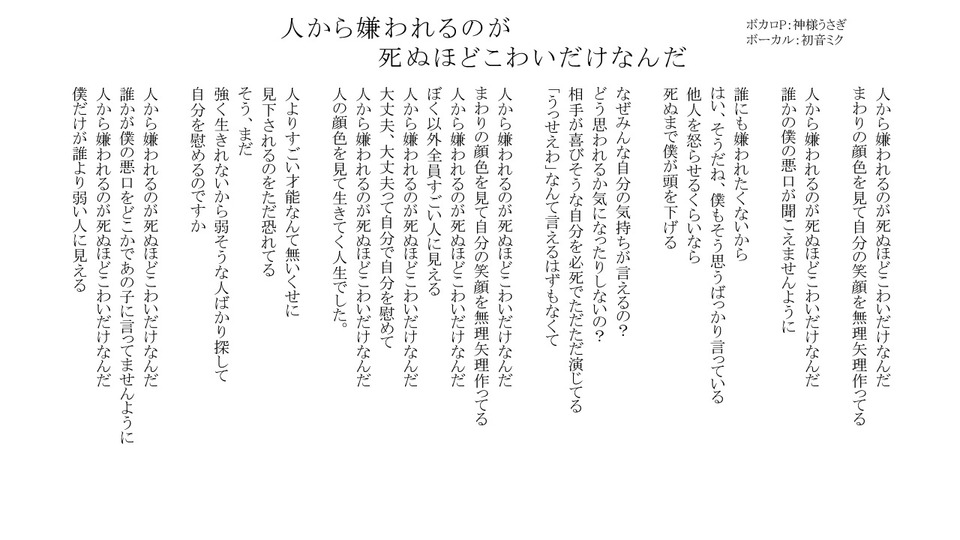 人から嫌われるのが
死ぬほどこわいだけなんだ
ボカロP：神様うさぎ
ボーカル：初音ミク
人から嫌われるのが死ぬほどこわいだけなんだ
まわりの顔色を見て自分の笑顔を無理矢理作ってる
人から嫌われるのが死ぬほどこわいだけなんだ
誰かの僕の悪口が聞こえませんように
誰にも嫌われたくないから
はい、そうだね、僕もそう思うばっかり言っている
他人を怒らせるくらいなら
死ぬまで僕が頭を下げる
なぜみんな自分の気持ちが言えるの？
どう思われるか気になったりしないの？
相手が喜びそうな自分を必死でただただ演じてる
「うっせえわ」なんて言えるはずもなくて
人から嫌われるのが死ぬほどこわいだけなんだ
まわりの顔色を見て自分の笑顔を無理矢理作ってる
人から嫌われるのが死ぬほどこわいだけなんだ
ぼく以外全員すごい人に見える
人から嫌われるのが死ぬほどこわいだけなんだ
大丈夫、大丈夫って自分で自分を慰めて
人から嫌われるのが死ぬほどこわいだけなんだ
人の顔色を見て生きてく人生でした。
人よりすごい才能なんて無いくせに
見下されるのをただ恐れてる
そう、まだ
強く生きれないから弱そうな人ばかり探して
自分を慰めるのですか
人から嫌われるのが死ぬほどこわいだけなんだ
誰かが僕の悪口をどこかであの子に言ってませんように
人から嫌われるのが死ぬほどこわいだけなんだ
僕だけが誰より弱い人に見える